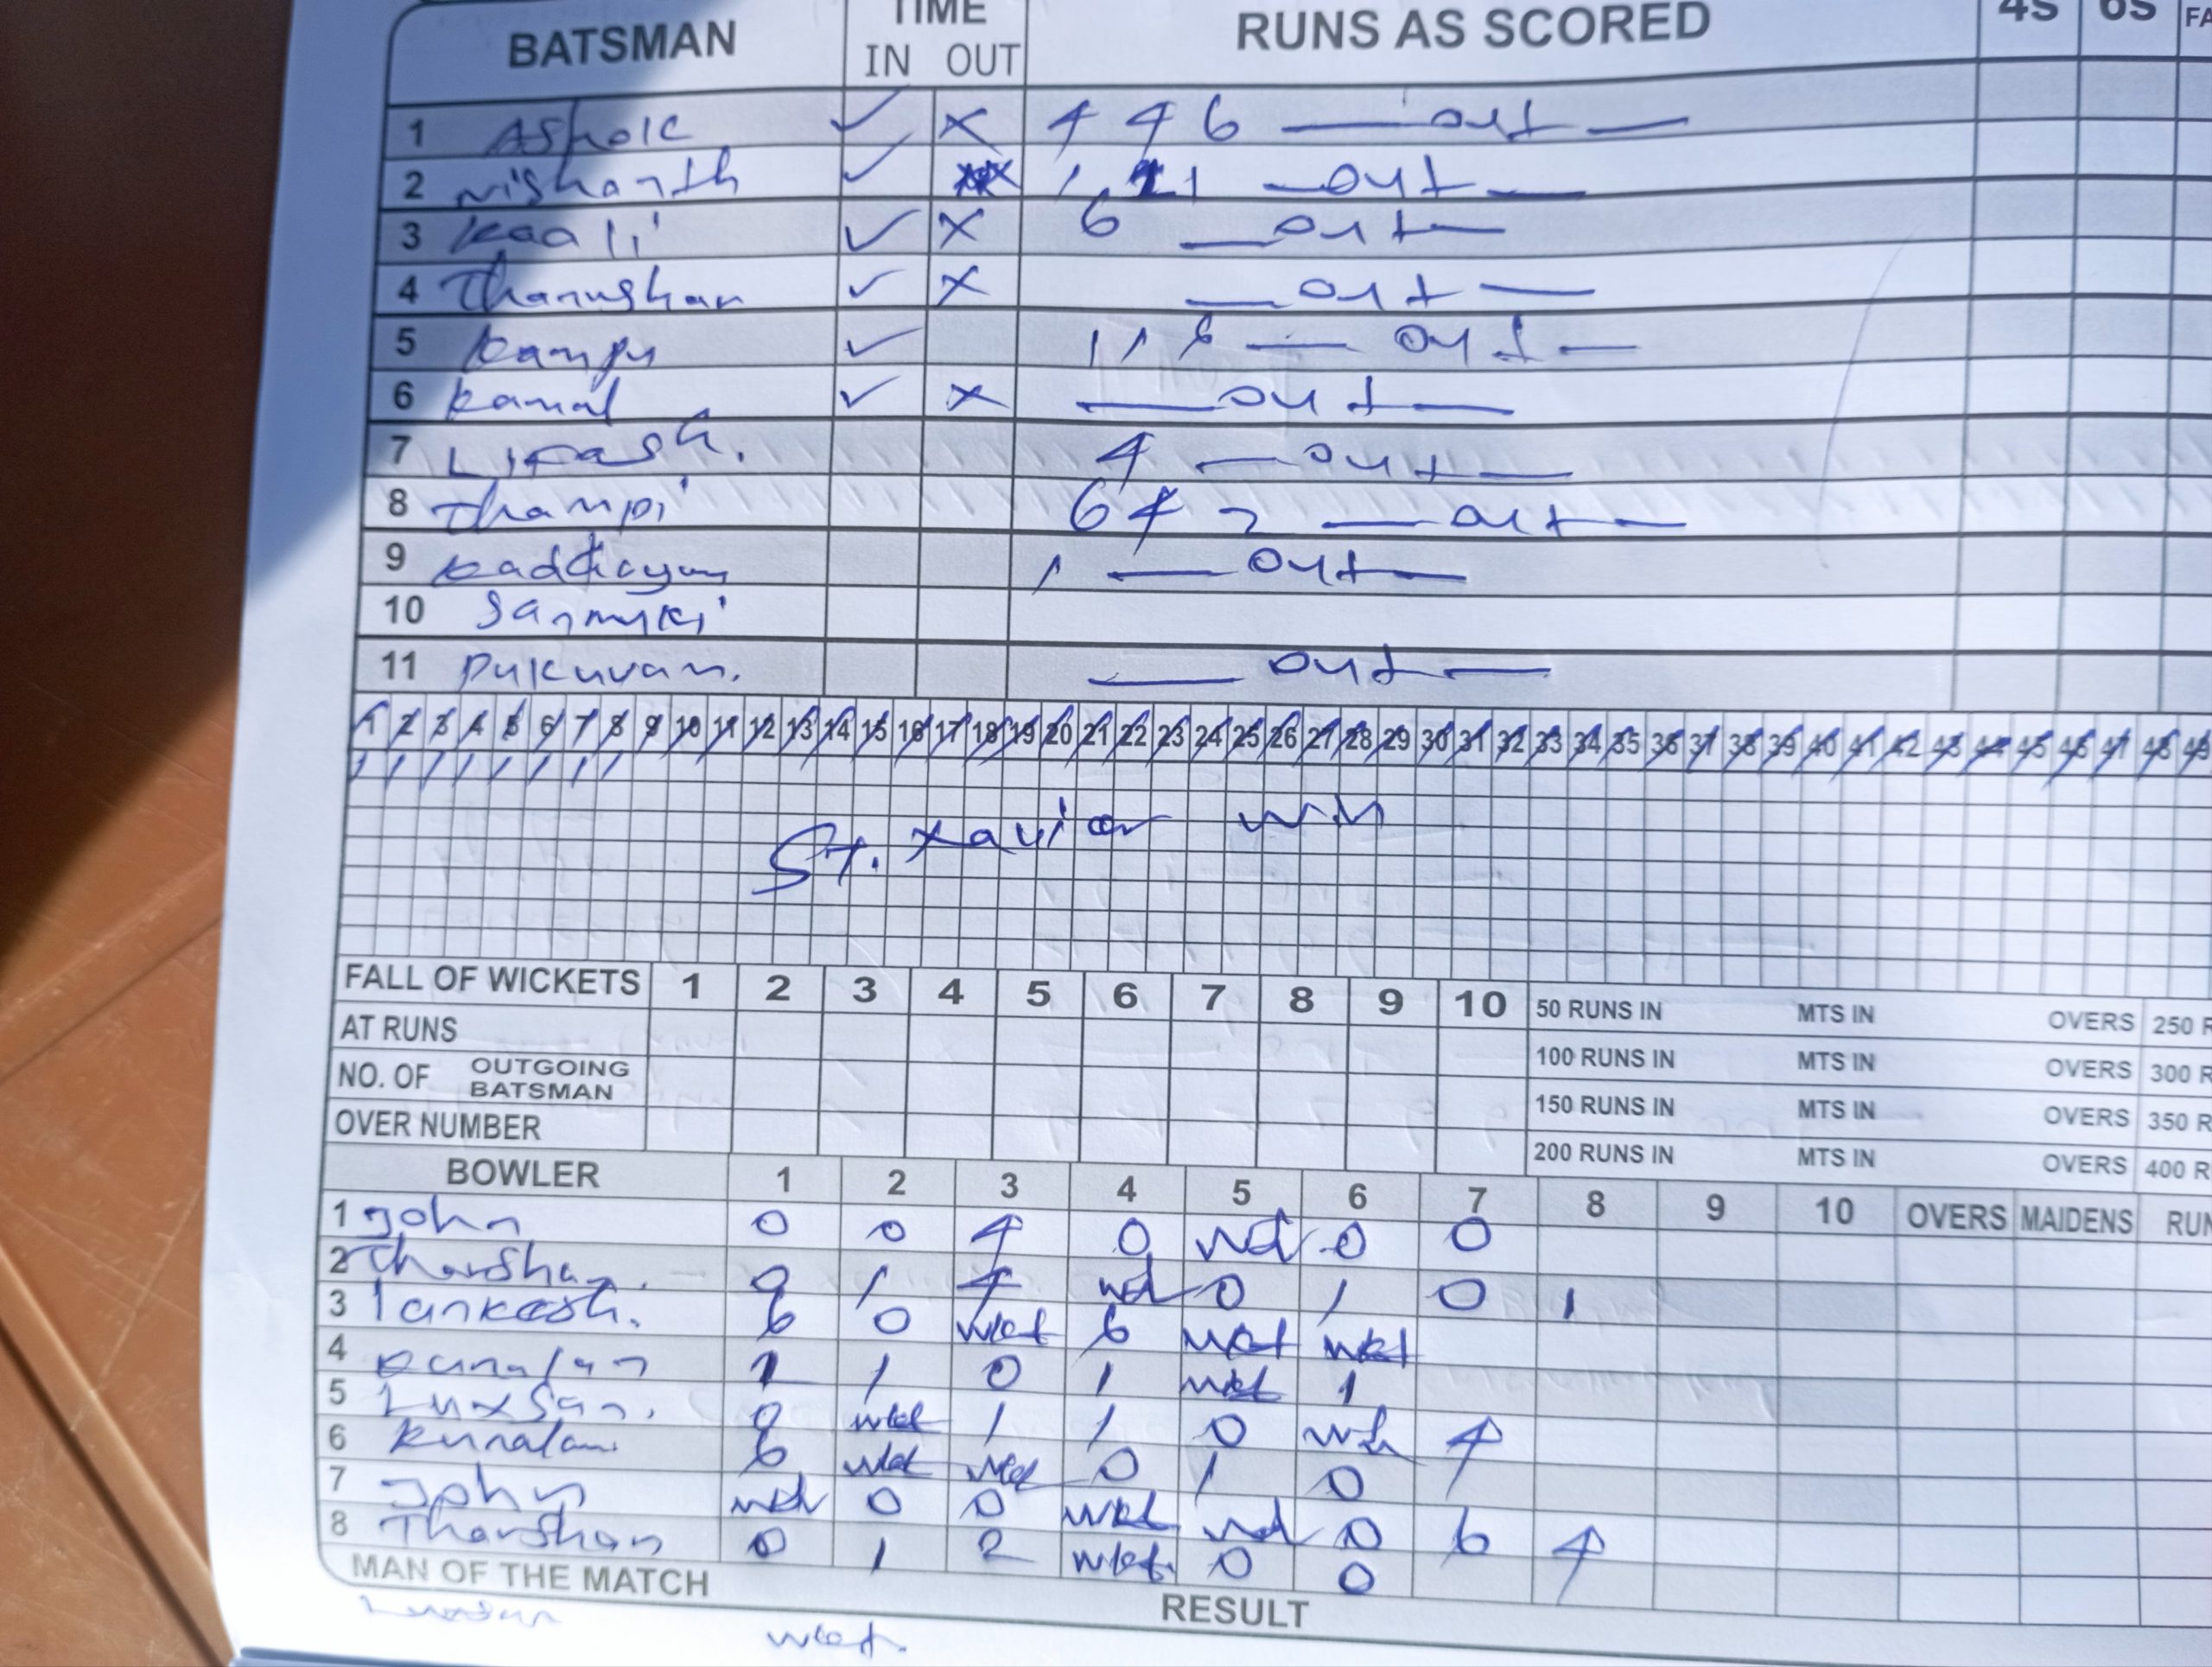 BATSMAN TIME IN OUT RUNS AS SCORED 4S 6S FA
1 Ashok ✓ × 4 4 6 — out —
2 Nishanth ✓ 1 1 — out —
3 Kaali ✓ × 6 — out —
4 Thanushan ✓ × — out —
5 Kampu ✓ 1 1 6 — out —
6 Kamal ✓ × — out —
7 4 — out —
8 Thampi 6 4 2 — out —
9 1 — out —
10 Sanmuki
11 Pukuvan. — out —
1 2 3 4 5 6 7 8 9 10 11 12 13 14 15 16 17 18 19 20 21 22 23 24 25 26 27 28 29 30 31 32 33 34 35 36 37 38 39 40 41 42 43 44 45 46 47 48 49
/ / / / / / / /
St. Xavier win
FALL OF WICKETS 1 2 3 4 5 6 7 8 9 10 50 RUNS IN MTS IN OVERS 250 R
AT RUNS 100 RUNS IN MTS IN OVERS 300 R
NO. OF OUTGOING BATSMAN 150 RUNS IN MTS IN OVERS 350 R
OVER NUMBER 200 RUNS IN MTS IN OVERS 400 R
BOWLER 1 2 3 4 5 6 7 8 9 10 OVERS MAIDENS RUN
1 John 0 0 4 0 wd 0 0
2 Tharshan. 0 1 4 wd 0 1 0 1
3 Tankash. 6 0 wkt 6 wkt wkt
4 Kunalan 1 1 0 1 wkt 1
5 Luxsan. 0 wkt 1 1 0 4
6 Kunalan 6 wkt wkt 0 1 0
7 John 0 0 wkt wd 0 6 4
8 Tharshan 0 1 2 wkt. 0 0
MAN OF THE MATCH RESULT
wkt.